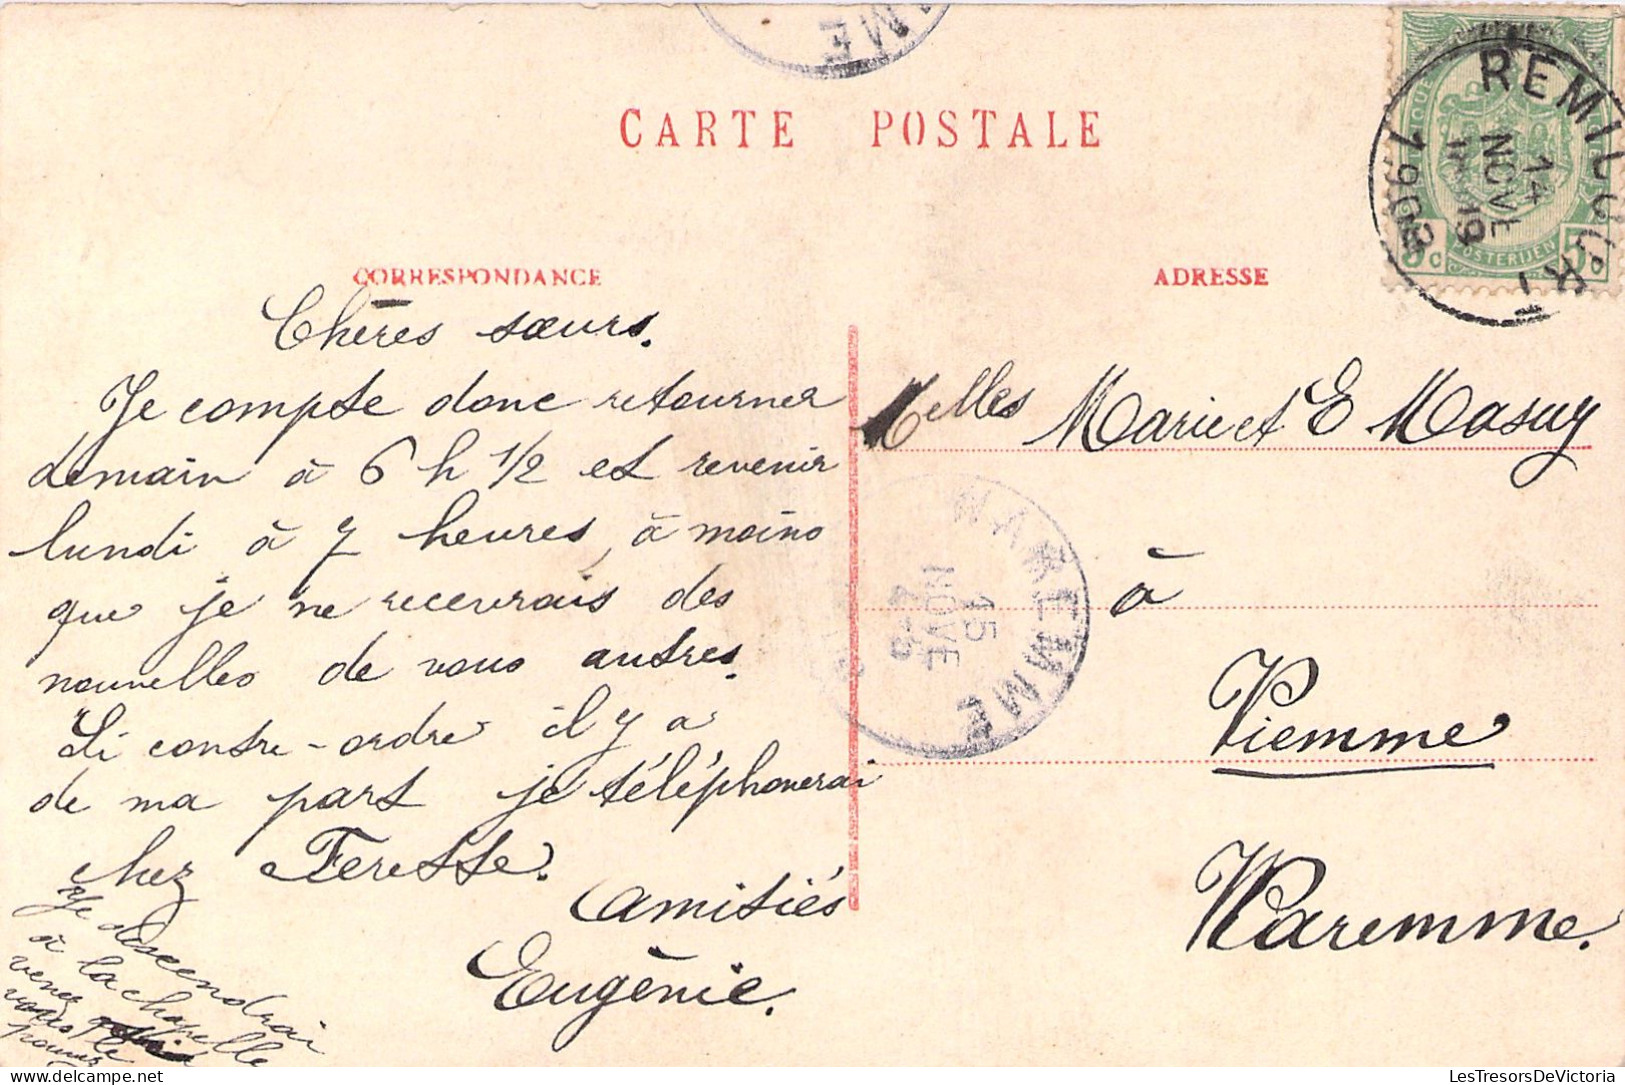 CARTE POSTALE
CORRESPONDANCE
ADRESSE
Chères sœurs.
Je compte donc retourner
demain à 6 h 1/2 et revenir
lundi à 7 heures, à moins
que je ne recevrais des
nouvelles de vous autres.
Si contre-ordre il y a
de ma part je téléphonerai
chez Terette.
Amitiés
Eugénie.
Je descendrai
à la chapelle
venez
vous le
pouvez
Melles Marie et E Masuy
à
Viemme
Waremme.
REMICOURT
14
NOVE
19
1908
5c
POSTERIJEN
5c
WAREMME
15
NOVE
ME
LesTresorsDeVictoria